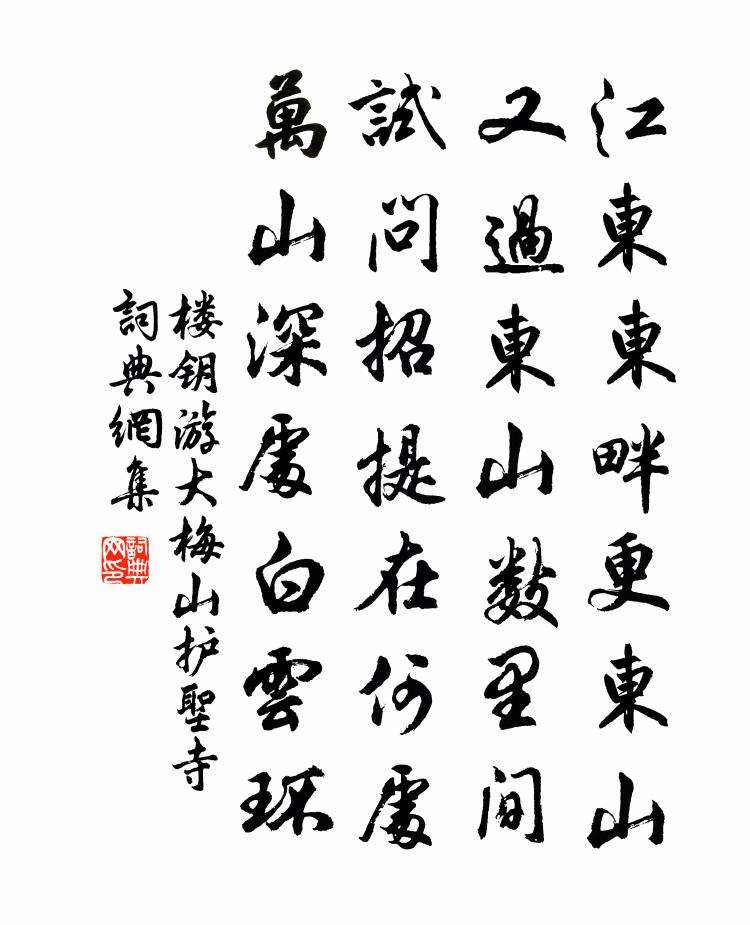 江東東畔更東山
又過東山數里間
試問招提在何處
萬山深處白雲环
楼钥游大梅山护聖寺
詞典網集
詞典网印